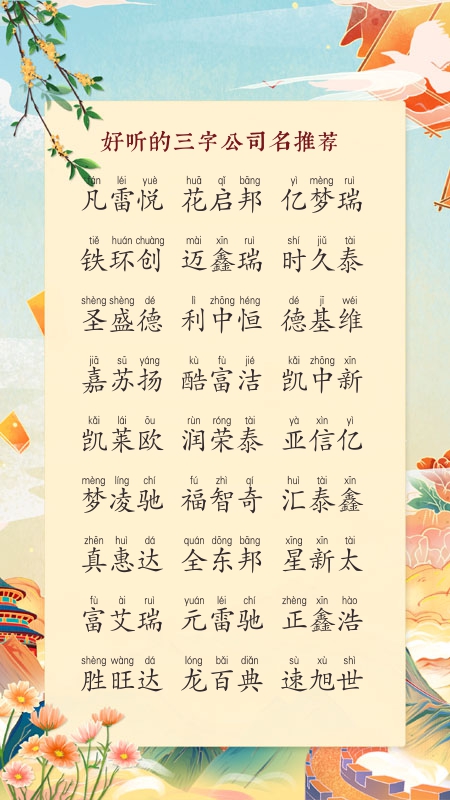 好听的三字公司名推荐
fán léi yuè huā qǐ bāng yì mèng ruì
凡雷悦 花启邦 亿梦瑞
tiě huán chuàng mài xīn ruì shí jiǔ tài
铁环创 迈鑫瑞 时久泰
shèng shèng dé lì zhōng héng dé jī wéi
圣盛德 利中恒 德基维
jiā sū yáng kù fù jié kǎi zhōng xīn
嘉苏扬 酷富洁 凯中新
kǎi lái ōu rùn róng tài yà xìn yì
凯莱欧 润荣泰 亚信亿
mèng líng chí fú zhì qí huì tài xīn
梦凌驰 福智奇 汇泰鑫
zhēn huì dá quán dōng bāng xīng xīn tài
真惠达 全东邦 星新太
fù ài ruì yuán léi chí zhèng xīn hào
富艾瑞 元雷驰 正鑫浩
shèng wàng dá lóng bǎi diǎn sù xù shì
胜旺达 龙百典 速旭世